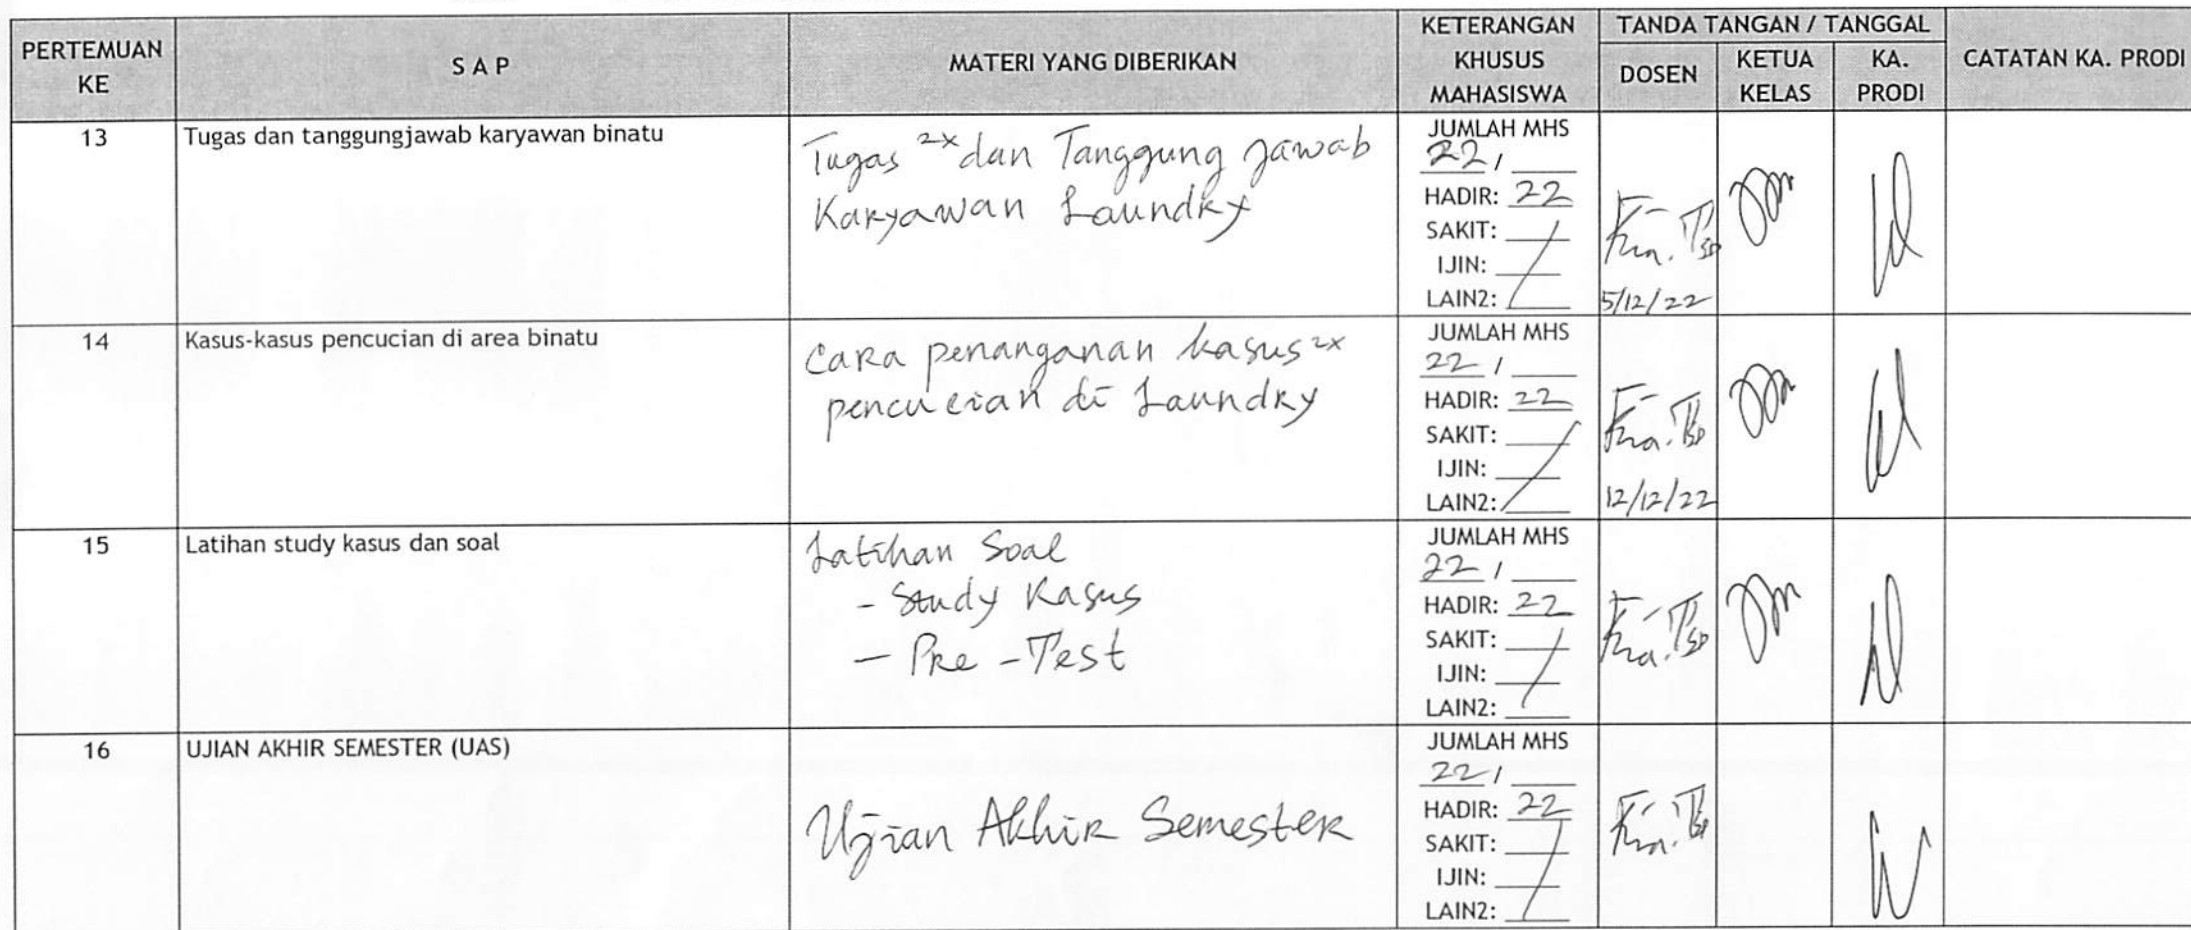 PERTEMUAN KE
S A P
MATERI YANG DIBERIKAN
KETERANGAN KHUSUS MAHASISWA
TANDA TANGAN / TANGGAL
DOSEN
KETUA KELAS
KA. PRODI
CATATAN KA. PRODI
13
Tugas dan tanggungjawab karyawan binatu
Tugas 2x dan Tanggung jawab
Karyawan Laundry
JUMLAH MHS
22 /
HADIR: 22
SAKIT:
IJIN:
LAIN2:
5/12/22
14
Kasus-kasus pencucian di area binatu
Cara penanganan kasus 2x
pencucian di Laundry
JUMLAH MHS
22 /
HADIR: 22
SAKIT:
IJIN:
LAIN2:
12/12/22
15
Latihan study kasus dan soal
Latihan Soal
- Study Kasus
- Pre - Test
JUMLAH MHS
22 /
HADIR: 22
SAKIT:
IJIN:
LAIN2:
16
UJIAN AKHIR SEMESTER (UAS)
Ujian Akhir Semester
JUMLAH MHS
22 /
HADIR: 22
SAKIT:
IJIN:
LAIN2: